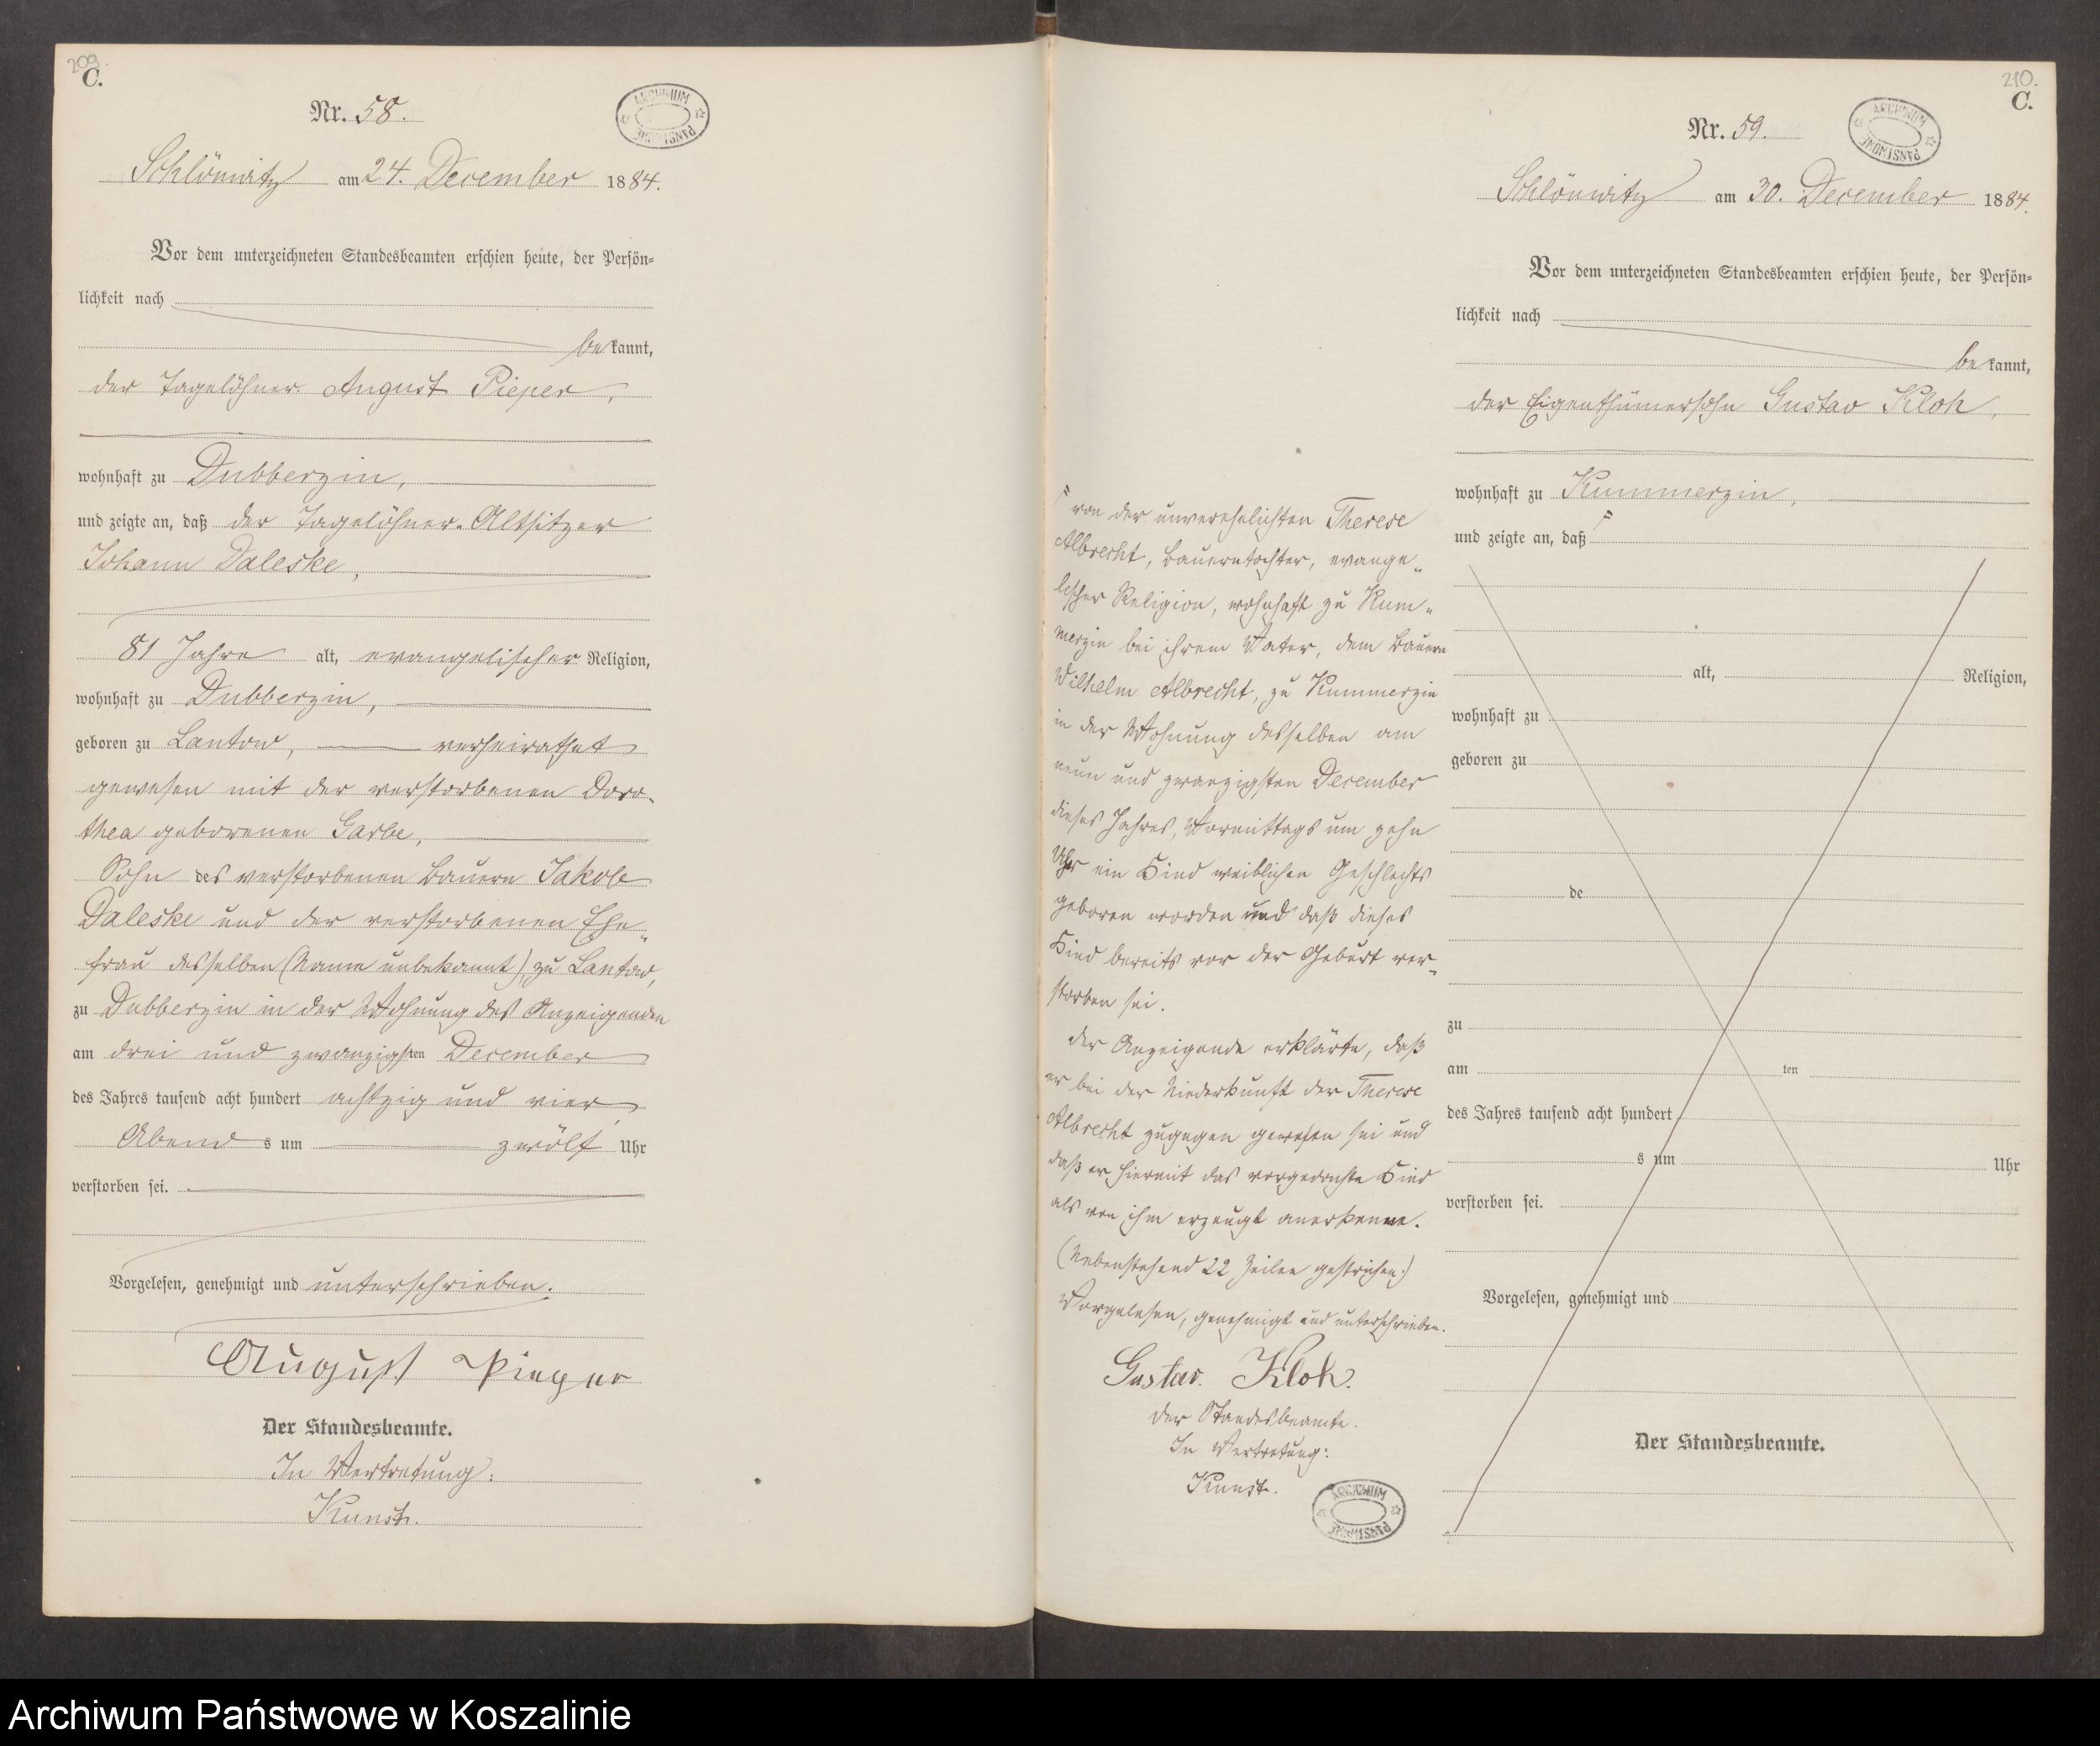 209.
C.
Nr. 58.
ARCHIWUM PAŃSTWOWE
Schlönwitz am 24. December 1884.
Vor dem unterzeichneten Standesbeamten erschien heute, der Persön=
lichkeit nach
bekannt,
der Tagelöhner August Pieper,
wohnhaft zu Dubberzin,
und zeigte an, daß der Tagelöhner-Altsitzer
Johann Daleske,
81 Jahre alt, evangelischer Religion,
wohnhaft zu Dubberzin,
geboren zu Lantow, verheirathet
gewesen mit der verstorbenen Doro-
thea geborenen Garbe,
Sohn des verstorbenen Bauern Jakob
Daleske und der verstorbenen Ehe-
frau desselben (Name unbekannt), zu Lantow,
zu Dubberzin in der Wohnung des Anzeigenden
am drei und zwanzigsten December
des Jahres tausend acht hundert achtzig und vier,
Abends um zwölf Uhr
verstorben sei.
Vorgelesen, genehmigt und unterschrieben.
August Pieper
Der Standesbeamte.
In Vertretung:
Kunst.
210.
C.
Nr. 59.
ARCHIWUM PAŃSTWOWE
Schlönwitz am 30. December 1884.
Vor dem unterzeichneten Standesbeamten erschien heute, der Persön=
lichkeit nach
bekannt,
der Eigenthümersohn Gustav Kloh,
wohnhaft zu Kummerzin,
und zeigte an, daß
alt, Religion,
wohnhaft zu
geboren zu
de
zu
am ten
des Jahres tausend acht hundert
s um Uhr
verstorben sei.
Vorgelesen, genehmigt und
Der Standesbeamte.
von der unverehelichten Therese
Albrecht, Bauerntochter, evange-
lischer Religion, wohnhaft zu Kum-
merzin bei ihrem Vater, dem Bauern
Wilhelm Albrecht, zu Kummerzin
in der Wohnung desselben am
neun und zwanzigsten December
dieses Jahres, Vormittags um zehn
Uhr ein Kind weiblichen Geschlechts
geboren worden und daß dieses
Kind bereits vor der Geburt ver-
storben sei.
Der Anzeigende erklärte, daß
er bei der Niederkunft der Therese
Albrecht zugegen gewesen sei und
daß er hiermit das vorgedachte Kind
als von ihm erzeugt anerkenne.
(Nebenstehend 22 Zeilen gestrichen.)
Vorgelesen, genehmigt und unterschrieben.
Gustav. Kloh.
Der Standesbeamte.
In Vertretung:
Kunst.
ARCHIWUM PAŃSTWOWE
Archiwum Państwowe w Koszalinie